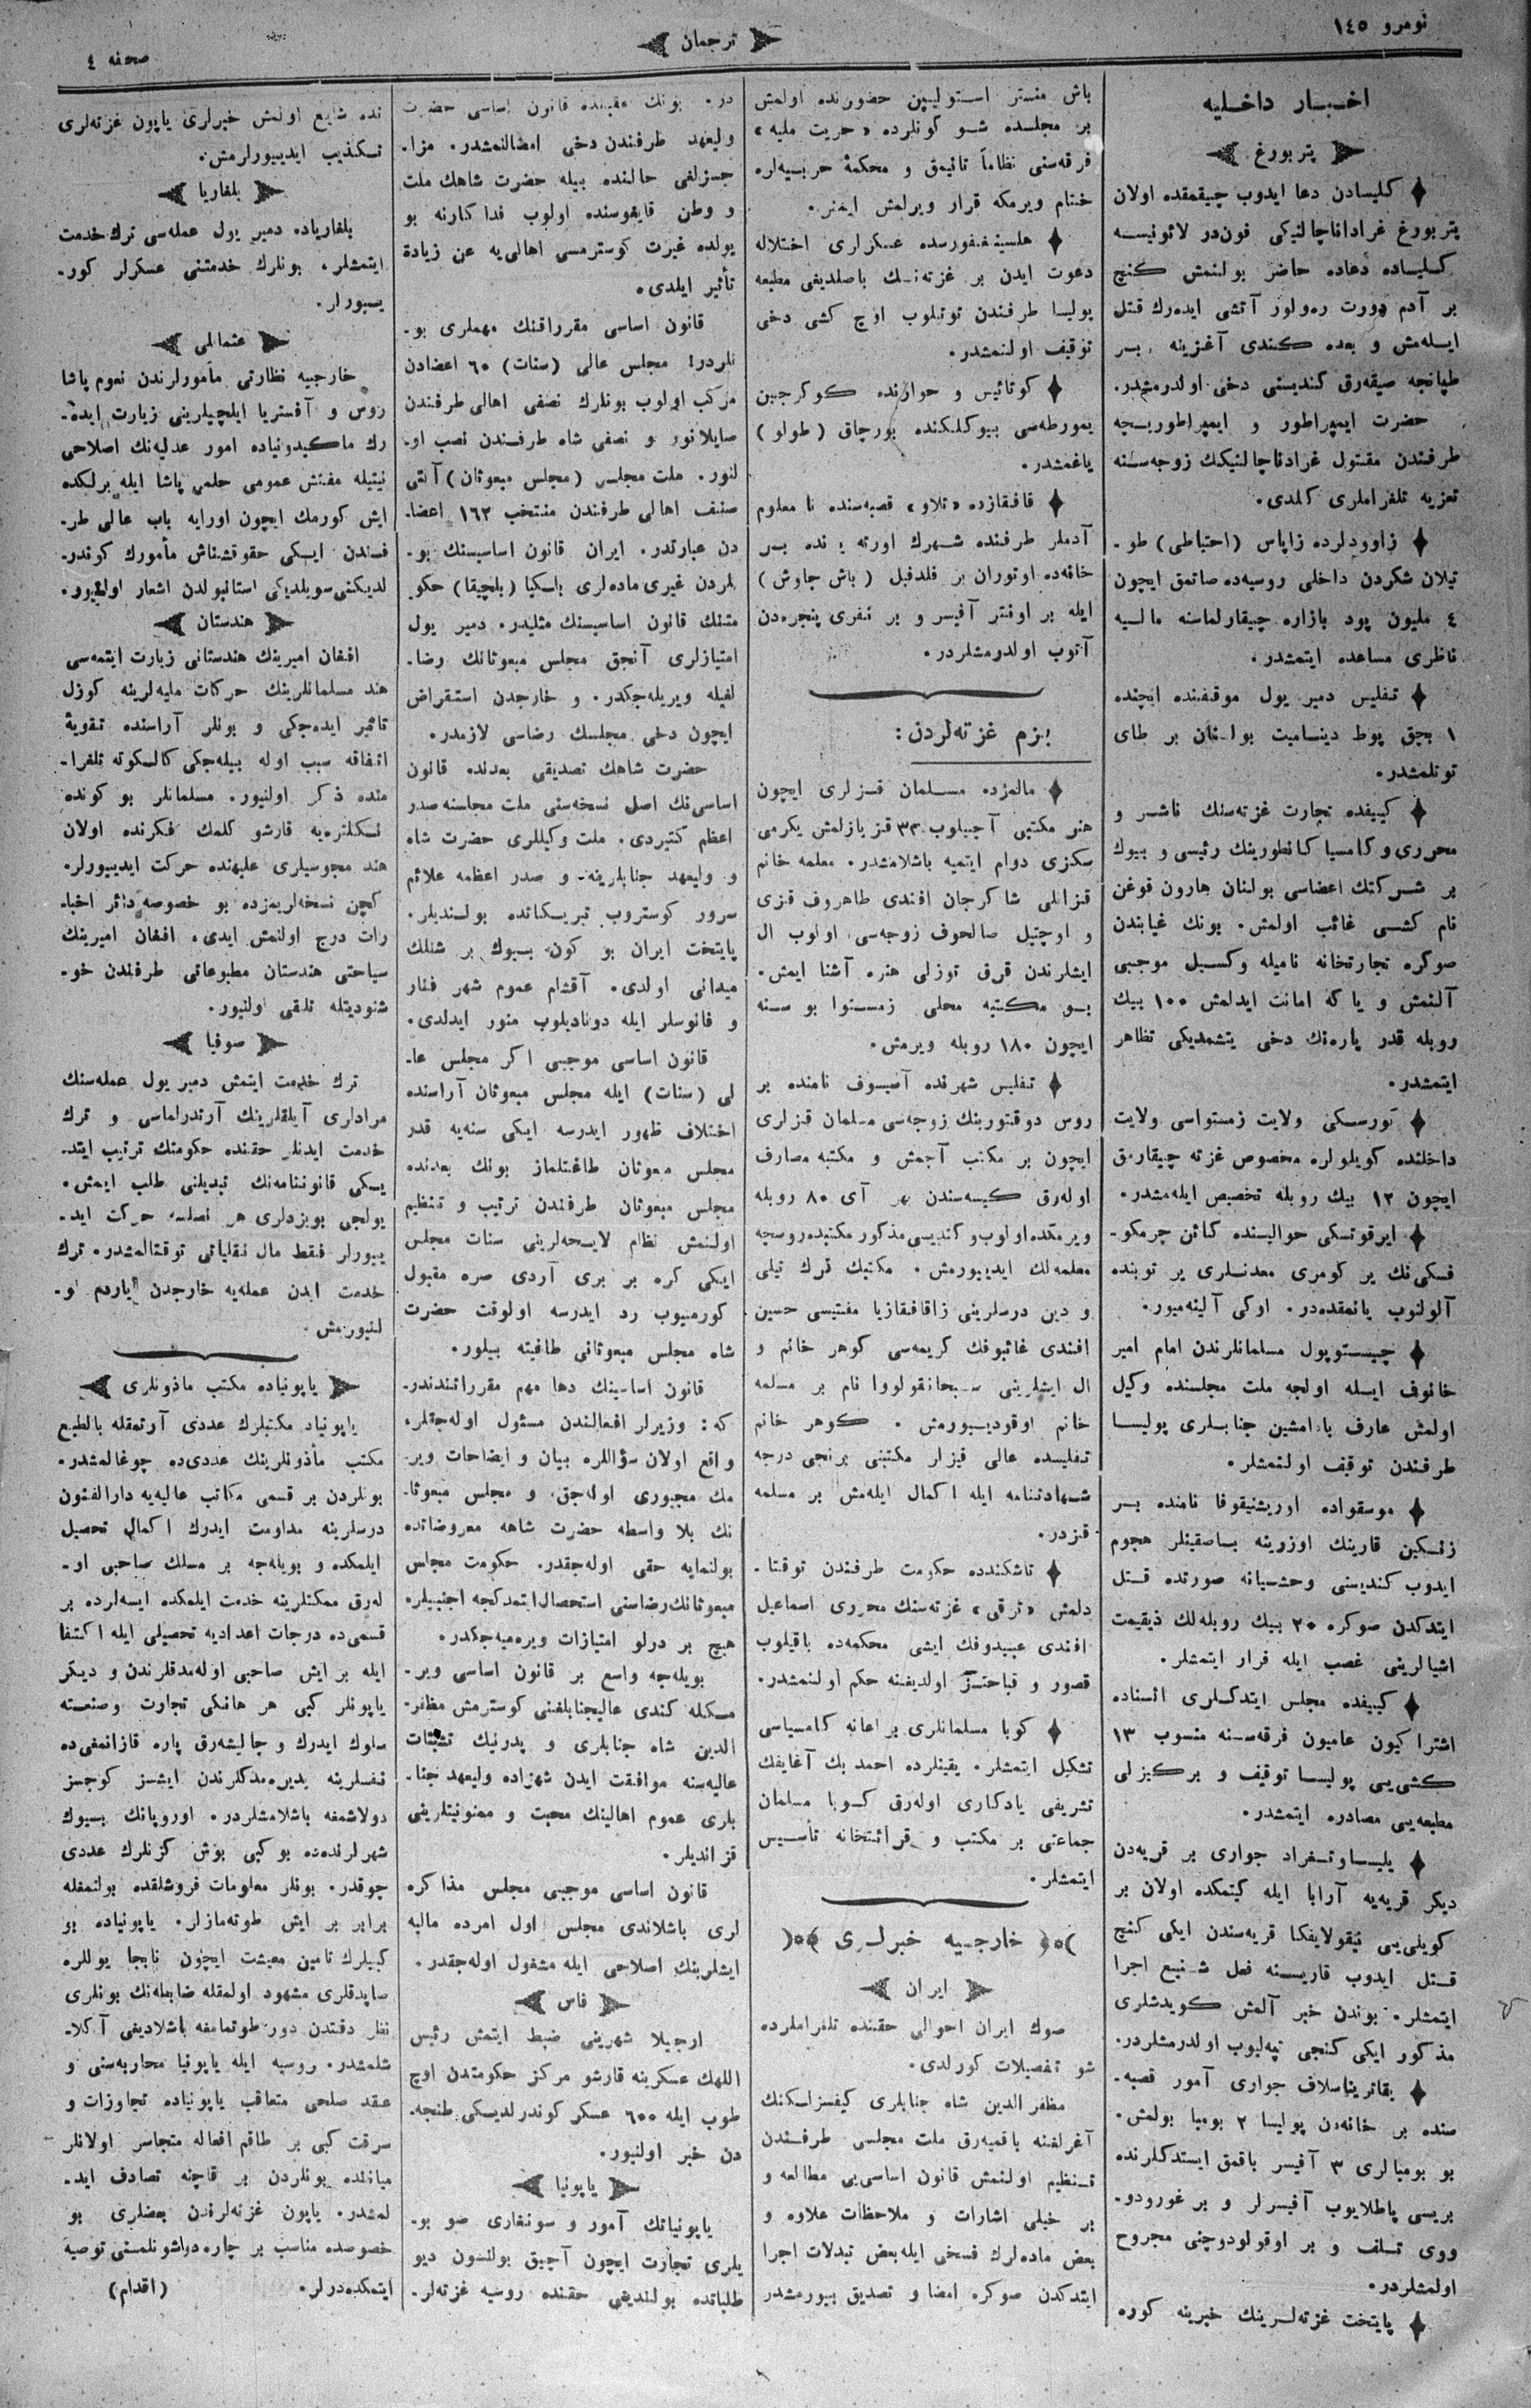 نومرو ١٤٥
ترجمان
صحفه ٤
اخبار داخليه
پتربورغ
كليسادن دعا ايدوب چيقمقده اولان
پتربورغ غراداناچالنيكى فون‌در لاؤنيسه
كليساده دعاده حاضر بولنمش كنج
بر آدم دورت ره‌ولور آتشى ايده‌رك قتل
ايله‌مش و بعده كندى آغزينه بر
طپانجه صيقه‌رق كنديسنى دخى اولدرمشدر.
حضرت ايمپراطور و ايمپراطوريچه
طرفندن مقتول غراداناچالنيكك زوجه‌سنه
تعزيه تلغراملرى كلدى.
زاوودلرده زاپاس (احتياطى) طو-
تيلان شكردن داخلى روسيه‌ده صاتمق ايچون
٤ مليون پود بازاره چيقارلماسنه ماليه
ناظرى مساعده ايتمشدر.
تفليس دمير يول موقفنده ايچنده
١ بچق پوط ديناميت بولنان بر طاى
توتلمشدر.
كييفده تجارت غزته‌سنك ناشر و
محررى و كامسيا كانطورينك رئيسى و بيوك
بر شركتك اعضاسى بولنان هارون قوغن
نام كشى غائب اولمش. بونك غيابندن
صوكره تجارتخانه ناميله وكسيل موجبى
آلنمش و ياكه امانت ايدلمش ١٠٠ بيك
روبله قدر پاره‌نك دخى يتشمديكى تظاهر
ايتمشدر.
تورسكى ولايت زمستواسى ولايت
داخلنده كويلولره مخصوص غزته چيقارمق
ايچون ١٢ بيك روبله تخصيص ايله‌مشدر.
ايرقوتسكى حواليسنده كائن چرمكو-
فسكى‌نك ير كومرى معدنلرى ير توبنده
آلولنوب يانمقده‌در. اوكى آلينه‌ميور.
چيستوپول مسلمانلرندن امام امير
خانوف ايله اولجه ملت مجلسنده وكيل
اولمش عارف بادامشين جنابلرى پوليسا
طرفندن توقيف اولنمشلر.
موسقواده اوريشنيقوفا نامنده بر
زنكين قارينك اوزرينه باصقينلر هجوم
ايدوب كنديسنى وحشيانه صورتده قتل
ايتدكدن صوكره ٢٠ بيك روبله‌لك ذيقيمت
اشيالرينى غصب ايله فرار ايتمشلر.
كييفده مجلس ايتدكلرى اثناده
اشتراكيون عاميون فرقه‌سنه منسوب ١٣
كشى‌يى پوليسا توقيف و بر كيزلى
مطبعه‌يى مصادره ايتمشدر.
يليساوتغراد جوارى بر قريه‌دن
ديكر قريه‌يه آرابا ايله كيتمكده اولان بر
كويلى‌يى نيقولايفكا قريه‌سندن ايكى كنج
قتل ايدوب قاريسنه فعل شنيع اجرا
ايتمشلر. بوندن خبر آلمش كويدشلرى
مذكور ايكى كنجى تپه‌ليوب اولدرمشلردر.
يقاترينا‌سلاف جوارى آمور قصبه-
سنده بر خانه‌دن پوليسا ٢ بومبا بولمش.
بو بومبالرى ٣ آفيسر باقمق ايستدكلرنده
بريسى پاطلايوب آفيسرلر و بر غورودو-
ووى تلف و بر اوقولودوچنى مجروح
اولمشلردر.
پايتخت غزته‌لرينك خبرينه كوره
باش منستر استوليپن حضورنده اولمش
بر مجلسده شو كونلرده «حريت مليه»
فرقه‌سنى نظاماً تانيمق و محكمۀ حربيه‌لره
ختام ويرمكه قرار ويرلمش ايمش.
هلسينغفورسده عسكرلرى اختلاله
دعوت ايدن بر غزته‌نك باصلديغى مطبعه
پوليسا طرفندن توتيلوب اوچ كشى دخى
توقيف اولنمشدر.
كوتائيس و حوارنده كوكرجين
يمورطه‌سى بيوكلكنده بورچاق (طولو)
ياغمشدر.
قافقازده «تلاو» قصبه‌سنده نامعلوم
آدملر طرفنده شهرك اورته‌يـ نده بر
خانه‌ده اوتوران بر فلدفبل (باش جاوش)
ايله بر اونتر آفيسر و بر نفرى پنجره‌دن
آتوب اولدرمشلردر.
بزم غزته‌لردن:
مالمزده مسلمان قزلرى ايچون
هنر مكتبى آچيلوب ٣٣ قز يازلمش يكرمى
سكزى دوام ايتميه باشلامشدر. معلمه خانم
قزانلى شاكرجان افندى طاهروف قزى
و اوچتيل صالحوف زوجه‌سى اولوب ال
ايشلرندن قرق توزلى هنره آشنا ايمش.
بو مكتبه محلى زمستوا بو سنه
ايچون ١٨٠ روبله ويرمش.
تفليس شهرنده آسيسوف نامنده بر
روس دوقتورينك زوجه‌سى مسلمان قزلرى
ايچون بر مكتب آچمش و مكتبه مصارف
اوله‌رق كيسه‌سندن بهر آى ٨٠ روبله
ويرمكده اولوب و كنديسى مذكور مكتبده روسچه
معلمه‌لك ايدييورمش. مكتبك ترك تيلى
و دين درسلرينى زاقافقازيا مفتيسى حسين
افندى غائبوفك كريمه‌سى كوهر خانم و
ال ايشلرينى سبحانقولووا نام بر مسلمه
خانم اوقودييورمش. كوهر خانم
تفليسده عالى قيزلر مكتبنى برنجى درجه
شهادتنامه ايله اكمال ايله‌مش بر مسلمه
قزدر.
تاشكندده حكومت طرفندن توقتا-
دلمش «ترقى» غزته‌سنك محررى اسماعيل
افندى عبيدوفك ايشى محكمه‌ده باقيلوب
قصور و قباحتسز اولديغنه حكم اولنمشدر.
كوبا مسلمانلرى بر اعانه كامسياسى
تشكيل ايتمشلر. يقينلرده احمد بك آغايفك
تشريفى يادكارى اوله‌رق كوبا مسلمان
جماعتى بر مكتب و قرائتخانه تأسيس
ايتمشلر.
خارجيه خبرلرى
ايران
صوك ايران احوالى حقنده تلغراملرده
شو تفصيلات كورلدى.
مظفر الدين شاه جنابلرى كيفسزلكنك
آغرلغنه باقميه‌رق ملت مجلسى طرفندن
تنظيم اولنمش قانون اساسى‌يى مطالعه و
بر خيلى اشارات و ملاحظات علاوه و
بعض ماده‌لرك فسخى ايله بعض تبدلات اجرا
ايتدكدن صوكره امضا و تصديق بيورمشدر
در. بونك عقبنده قانون اساسى حضرت
وليعهد طرفندن دخى امضالنمشدر. مزا-
جسزلغى حالنده بيله حضرت شاهك ملت
و وطن قايغوسنده اولوب فداكارنه بو
يولده غيرت كوسترمسى اهالى‌يه عن زيادة
تأثير ايلدى.
قانون اساسى مقرراتنك مهملرى بو-
نلردر: مجلس عالى (سنات) ٦٠ اعضادن
مركب اولوب بونلرك نصفى اهالى طرفندن
صايلانور و نصفى شاه طرفندن نصب او-
لنور. ملت مجلسى (مجلس مبعوثان) آلتى
صنف اهالى طرفندن منتخب ١٦٢ اعضا-
دن عبارتدر. ايران قانون اساسيسنك بو-
نلردن غيرى ماده‌لرى باسكيا (بلچيقا) حكو
متنك قانون اساسيسنك مثليدر. دمير يول
امتيازلرى آنجق مجلس مبعوثانك رضا-
لغيله ويريله‌جكدر. و خارجدن استقراض
ايچون دخى مجلسك رضاسى لازمدر.
حضرت شاهك تصديقى بعدنده قانون
اساسى‌نك اصل نسخه‌سنى ملت مجلسنه صدر
اعظم كتيردى. ملت وكيللرى حضرت شاه
و وليعهد جنابلرينه و صدر اعظمه علائم
سرور كوستروب تبريكاتده بولنديلر.
پايتخت ايران بو كون بيوك بر شنلك
ميدانى اولدى. آقشام عموم شهر فنار
و فانوسلر ايله دوناديلوب منور ايدلدى.
قانون اساسى موجبى اكر مجلس عا-
لى (سنات) ايله مجلس مبعوثان آراسنده
اختلاف ظهور ايدرسه ايكى سنه‌يه قدر
مجلس مبعوثان طاغتلماز بونك بعدنده
مجلس مبعوثان طرفندن ترتيب و تنظيم
اولنمش نظام لايحه‌لرينى سنات مجلس
ايكى كره بر برى آردى صره مقبول
كورميوب رد ايدرسه اولوقت حضرت
شاه مجلس مبعوثانى طاغيته بيلور.
قانون اساسينك دها مهم مقرراتندندر-
كه: وزيرلر افعالندن مسئول اوله‌جقلر.
واقع اولان سؤاللره بيان و ايضاحات وير-
مك مجبورى اوله‌جق. و مجلس مبعوثا-
نك بلا واسطه حضرت شاهه معروضاتده
بولنمايه حقى اوله‌جقدر. حكومت مجلس
مبعوثانك رضاسنى استحصال ايتمدكجه اجنبيلره
هيچ بر درلو امتيازات ويره‌ميه‌جكدر.
بويله‌جه واسع بر قانون اساسى وير-
مكله كندى عاليجنابلغنى كوسترمش مظفر-
الدين شاه جنابلرى و پدرنيك تشبثات
عاليه‌سنه موافقت ايدن شهزاده وليعهد جنا-
بلرى عموم اهالينك محبت و ممنونيتلرينى
قزانديلر.
قانون اساسى موجبى مجلس مذاكره
لرى باشلاندى مجلس اول امرده ماليه
ايشلرينك اصلاحى ايله مشغول اوله‌جقدر.
فاس
ارجيلا شهرينى ضبط ايتمش رئيس
اللهك عسكرينه قارشو مركز حكومتدن اوچ
طوب ايله ٦٠٠ عسكر كوندرلديكى طنجه-
دن خبر اولنيور.
ياپونيا
ياپونيانك آمور و سونغارى صو يو-
يلرى تجارت ايچون آچيق بولنسون ديو
طلباتده بولنديغى حقنده روسيه غزته‌لر-
نده شايع اولنمش خبرلرى ياپون غزته‌لرى
تكذيب ايدييورلرمش.
بلغاريا
بلغارياده دمير يول عمله‌سى ترك خدمت
ايتمشلر. بونلرك خدمتنى عسكرلر كور-
ييورلر.
عثمانلى
خارجيه نظارتى مأمورلرندن نعوم پاشا
روس و آفستريا ايلچيلرينى زيارت ايده-
رك ماكيدونياده امور عدليه‌نك اصلاحى
نيتيله مفتش عمومى حلمى پاشا ايله برلكده
ايش كورمك ايچون اورايه باب عالى طر-
فندن ايكى حقوقشناش مأمورك كوندر-
لديكنى سويلديكى استانبولدن اشعار اولنيور.
هندستان
افغان اميرينك هندستانى زيارت ايتمه‌سى
هند مسلمانلرينك حركات مليه‌لرينه كوزل
تاثير ايده‌جكى و بونلر آراسنده تقويۀ
اتفاقه سبب اوله بيله‌جكى كالكوته تلغرا-
منده ذكر اولنيور. مسلمانلر بو كونده
انكلتره‌يه قارشو كلمك فكرنده اولان
هند مجوسيلرى عليهنده حركت ايدييورلر.
كچن نسخه‌لريمزده بو خصوصه دائر اخبا-
رات درج اولنمش ايدى. افغان اميرينك
سياحتى هندستان مطبوعاتى طرفندن خو-
شنوديتله تلقى اولنيور.
صوفيا
ترك خدمت ايتمش دمير يول عمله‌سنك
مرادلرى آيلقلرينك آرتدرلماسى و ترك
خدمت ايدنلر حقنده حكومتك ترتيب ايتد-
يكى قانوننامه‌نك تبديلنى طلب ايمش.
يولجى پويزدلرى هر نصلسه حركت ايد-
ييورلر فقط مال نقلياتى توقتالمشدر. ترك
خدمت ايدن عمله‌يه خارجدن ياردم او-
لنيورمش.
ياپونياده مكتب ماذونلرى
ياپونياد مكتبلرك عددى آرتمقله بالطبع
مكتب مأذونلرينك عددى‌ده چوغالمشدر.
بونلردن بر قسمى مكاتب عاليه‌يه دارالفنون
درسلرينه مداومت ايدرك اكمال تحصيل
ايلمكده و بويله‌جه بر مسلك صاحبى او-
له‌رق مملكتلرينه خدمت ايلمكده ايسه‌لرده بر
قسمى‌ده درجات اعداديه تحصيلى ايله اكتفا
ايله بر ايش صاحبى اوله‌مدقلرندن و ديكر
ياپونلر كبى هر هانكى تجارت و صنعته
سلوك ايدرك و چاليشه‌رق پاره قازانمغى‌ده
نفسلرينه يديره‌مدكلرندن ايشسز كوجسز
دولاشمغه باشلامشلردر. اوروپانك بيوك
شهرلرنده‌ده بو كبى بوش كزنلرك عددى
چوقدر. بونلر معلومات فروشلقده بولنمغله
برابر بر ايش طوته‌مازلر. ياپونياده بو
كبيلرك تامين معيشت ايچون نابجا يوللره
صاپدقلرى مشهود اولمقله ضابطه‌نك بونلرى
نظر دقتدن دور طوتمامغه باشلاديغى آكلا-
شلمشدر. روسيه ايله ياپونيا محاربه‌سنى و
عقد صلحى متعاقب ياپونياده تجاوزات و
سرقت كبى بر طاقم افعاله متجاسر اولانلر
مياننده بونلردن بر قاچنه تصادف ايد-
لمشدر. ياپون غزته‌لرندن بعضلرى بو
خصوصده مناسب بر چاره دوشونلمسنى توصيه
ايتمكده‌درلر. (اقدام)